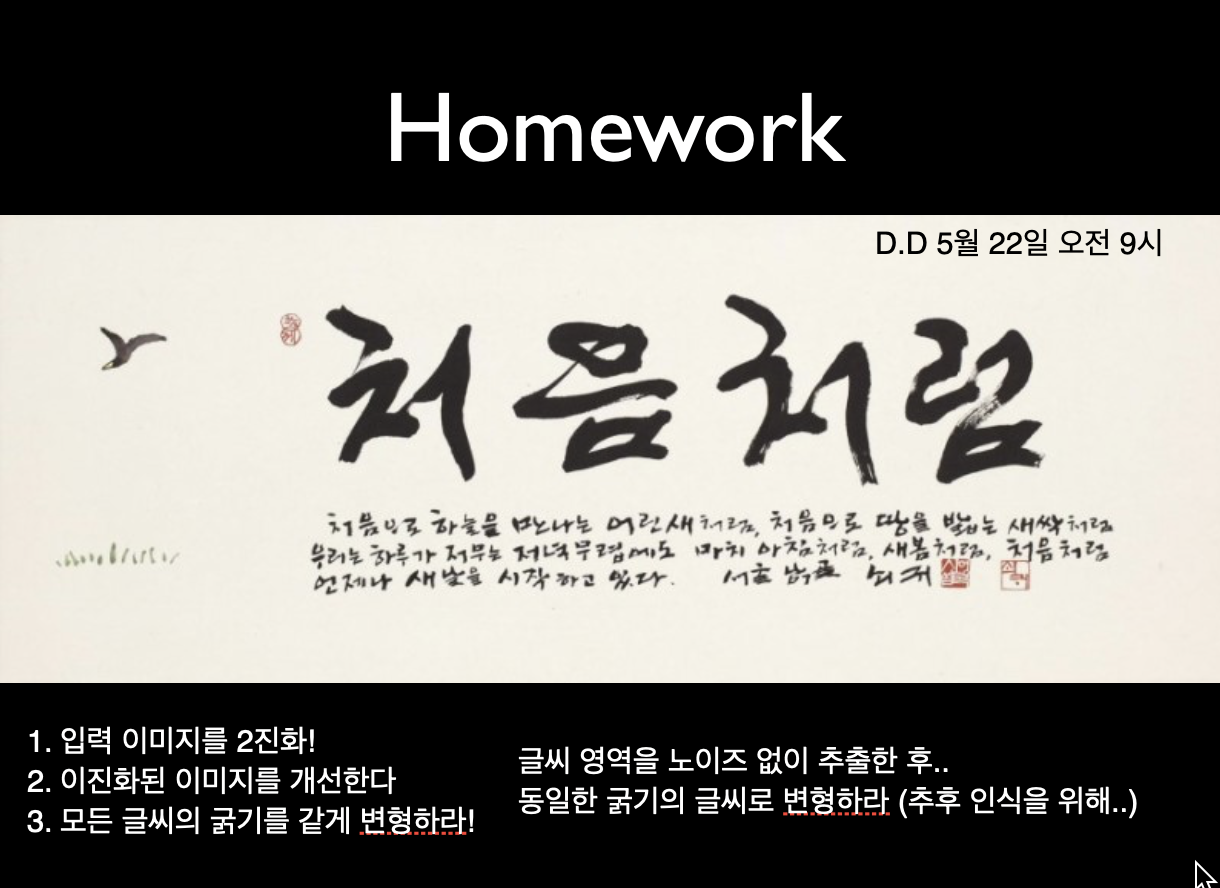 Homework
D.D 5월 22일 오전 9시
처음처럼
처음으로 하늘을 만나는 어린 새처럼, 처음으로 땅을 밟는 새싹처럼
우리는 하루가 저무는 저녁 무렵에도 마치 아침처럼, 새봄처럼, 처음처럼
언제나 새날을 시작하고 있다.
1. 입력 이미지를 2진화!
2. 이진화된 이미지를 개선한다
3. 모든 글씨의 굵기를 같게 변형하라!
글씨 영역을 노이즈 없이 추출한 후..
동일한 굵기의 글씨로 변형하라 (추후 인식을 위해..)